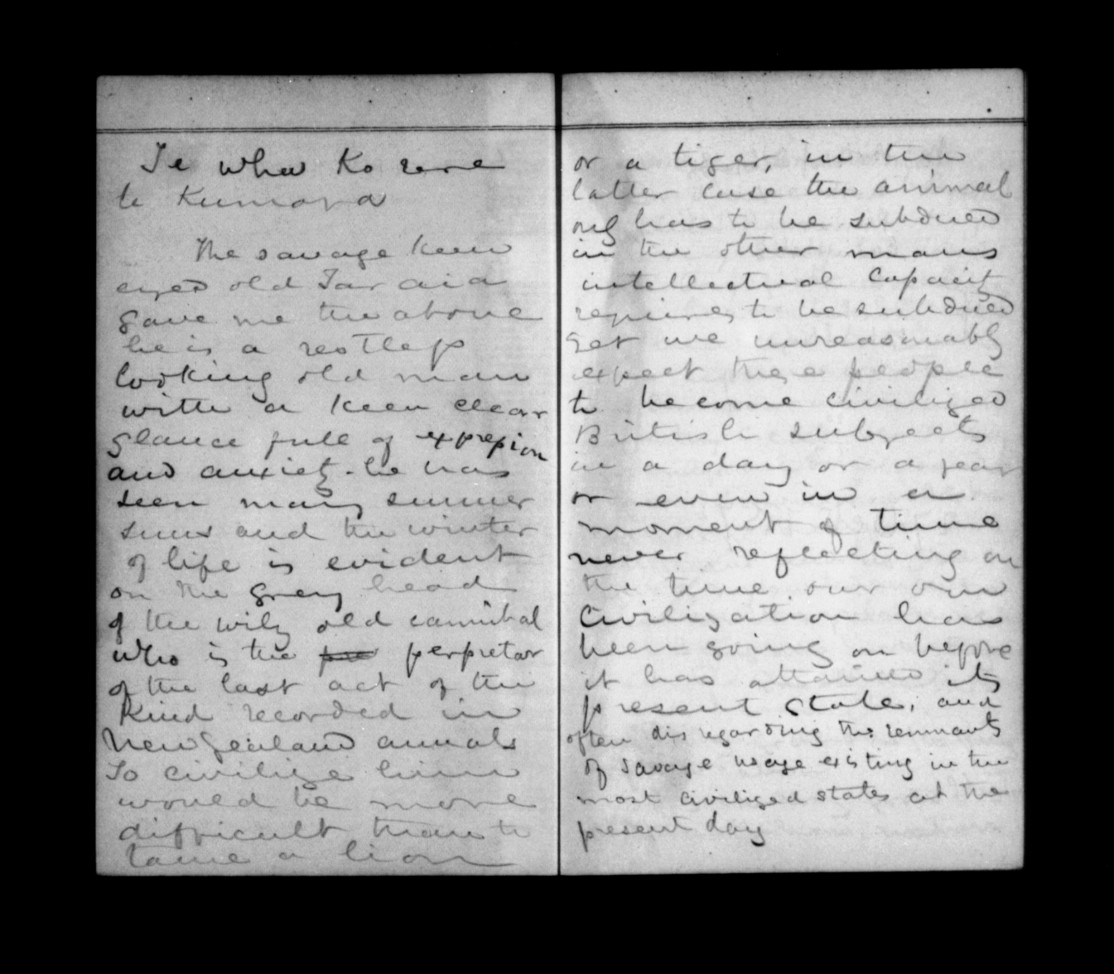 Te wha Ko rere
te Kumara
The savage keen
eyed old Tar aia
gave me the above
he is a restless
looking old man
with a keen clear
glance full of expression
and anxiety - he has
seen many summer
suns and the winter
of life is evident
on the grey head
of the wily old cannibal
who is the perpretar
of the last act of the
Kind recorded in
New Zealand annals
To civilize him
would be more
difficult than to
tame a lion
or a tiger, in the
latter case the animal
only has to be subdued
in the other mans
intellectual capacity
requires to be subdued
yet we unreasonably
expect these people
to become civilized
British subjects
in a day or a year
or even in a
moment of time
never reflecting on
the time our own
Civilization has
been going on before
it has attained its
present state, and
often disregarding the remnants
of savage usage existing in the
most civilized states at the
present day